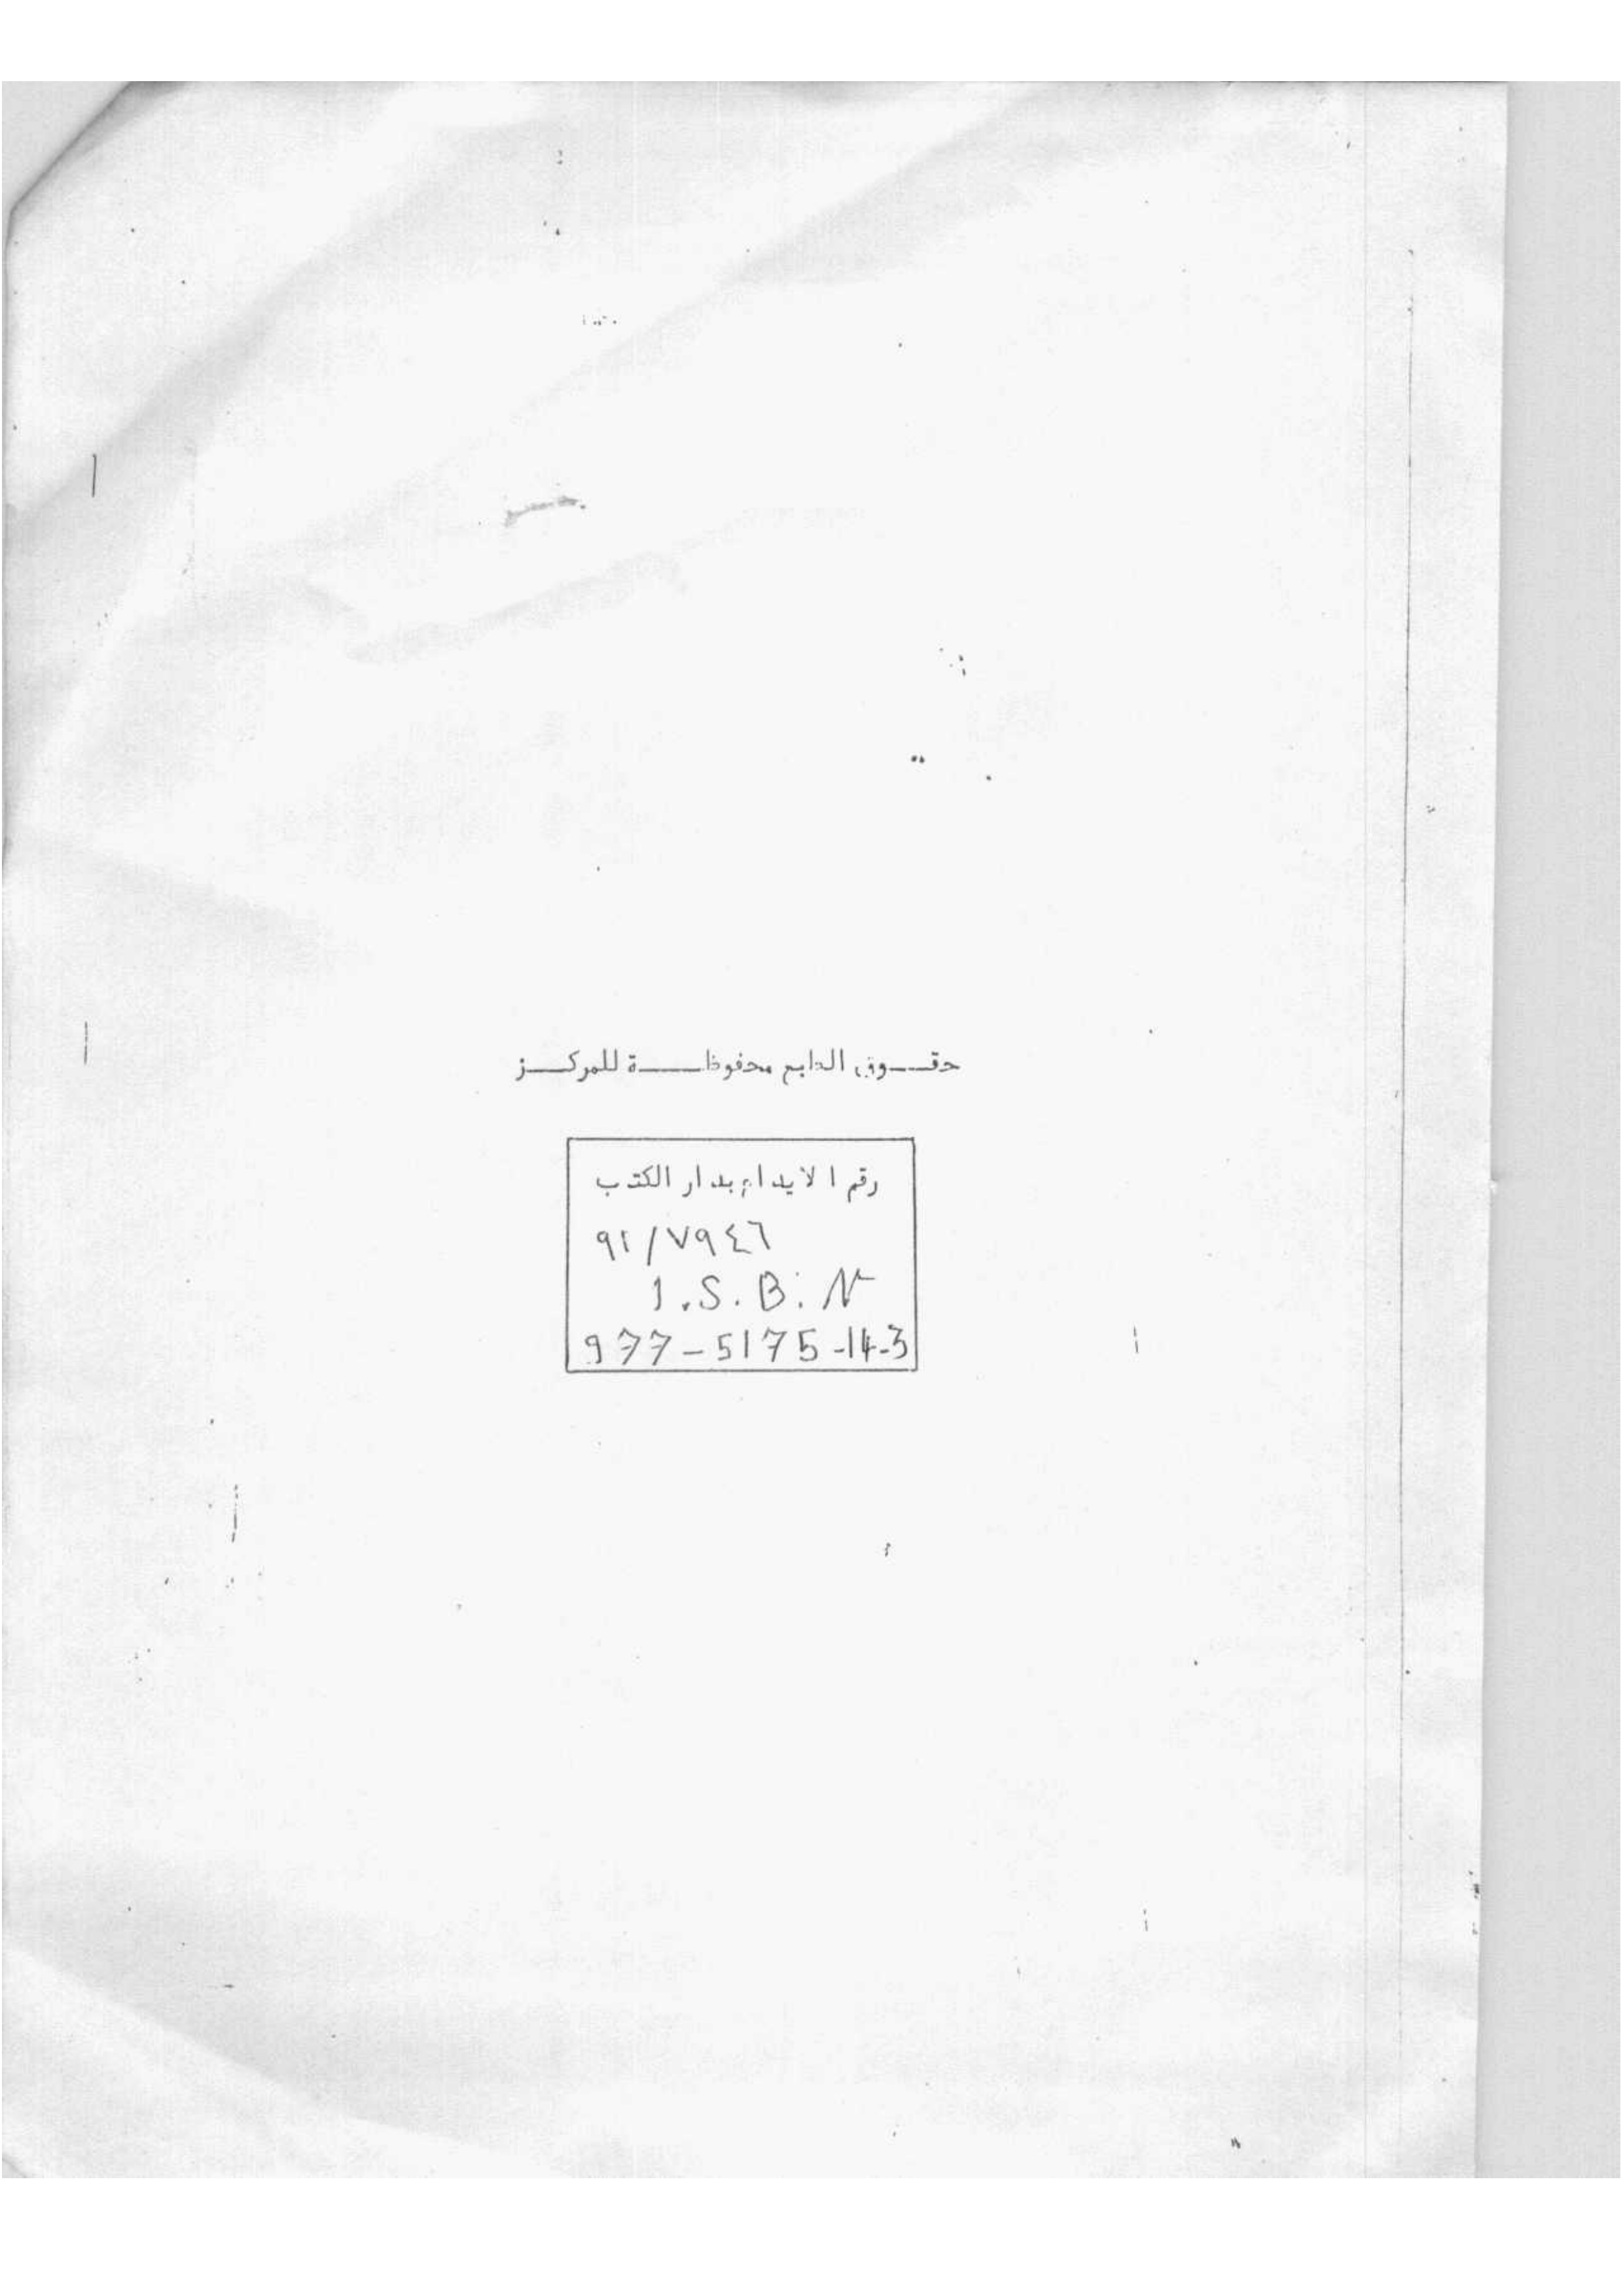 حقوق الطبع محفوظة للمركز
رقم الايداع بدار الكتب
٩١/٧٩٤٦
I.S.B.N
977-5175-14-3